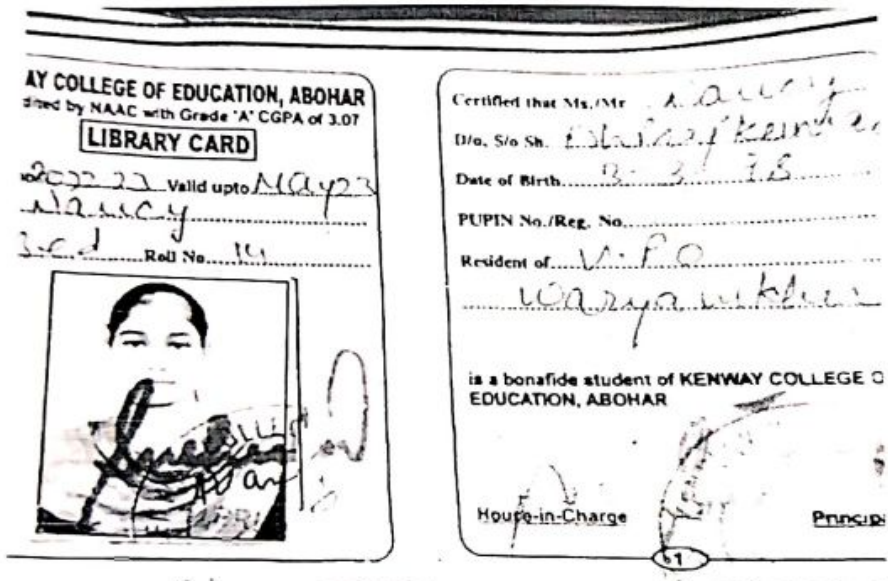 AY COLLEGE OF EDUCATION, ABOHAR
dited by NAAC with Grade 'A' CGPA of 3.07
LIBRARY CARD
2022 23 Valid upto May 23
Nancy
B.ed Roll No. 14
Certified that Ms./Mr Nancy
D/o, S/o Sh.
Date of Birth 3
PUPIN No./Reg. No.
Resident of V.P.O
is a bonafide student of KENWAY COLLEGE O
EDUCATION, ABOHAR
House-in-Charge
Princip
1